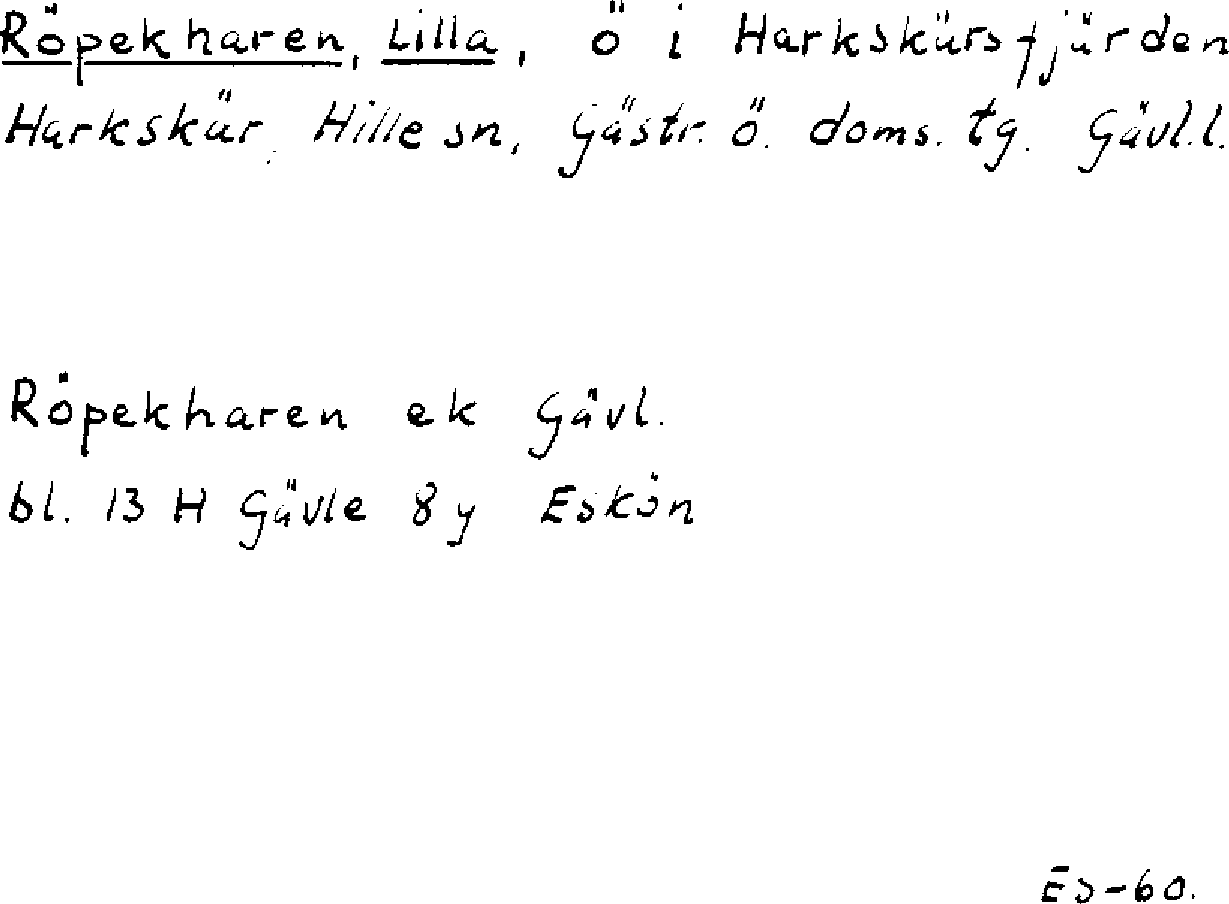 Röpekharen, Lilla, ö i Harkskärsfjärden
Harkskär, Hille sn, Gästr. ö. doms. tg. Gävl.l.
Röpekharen ek Gävl.
bl. 13 H Gävle 8 y Eskön
Es-60.